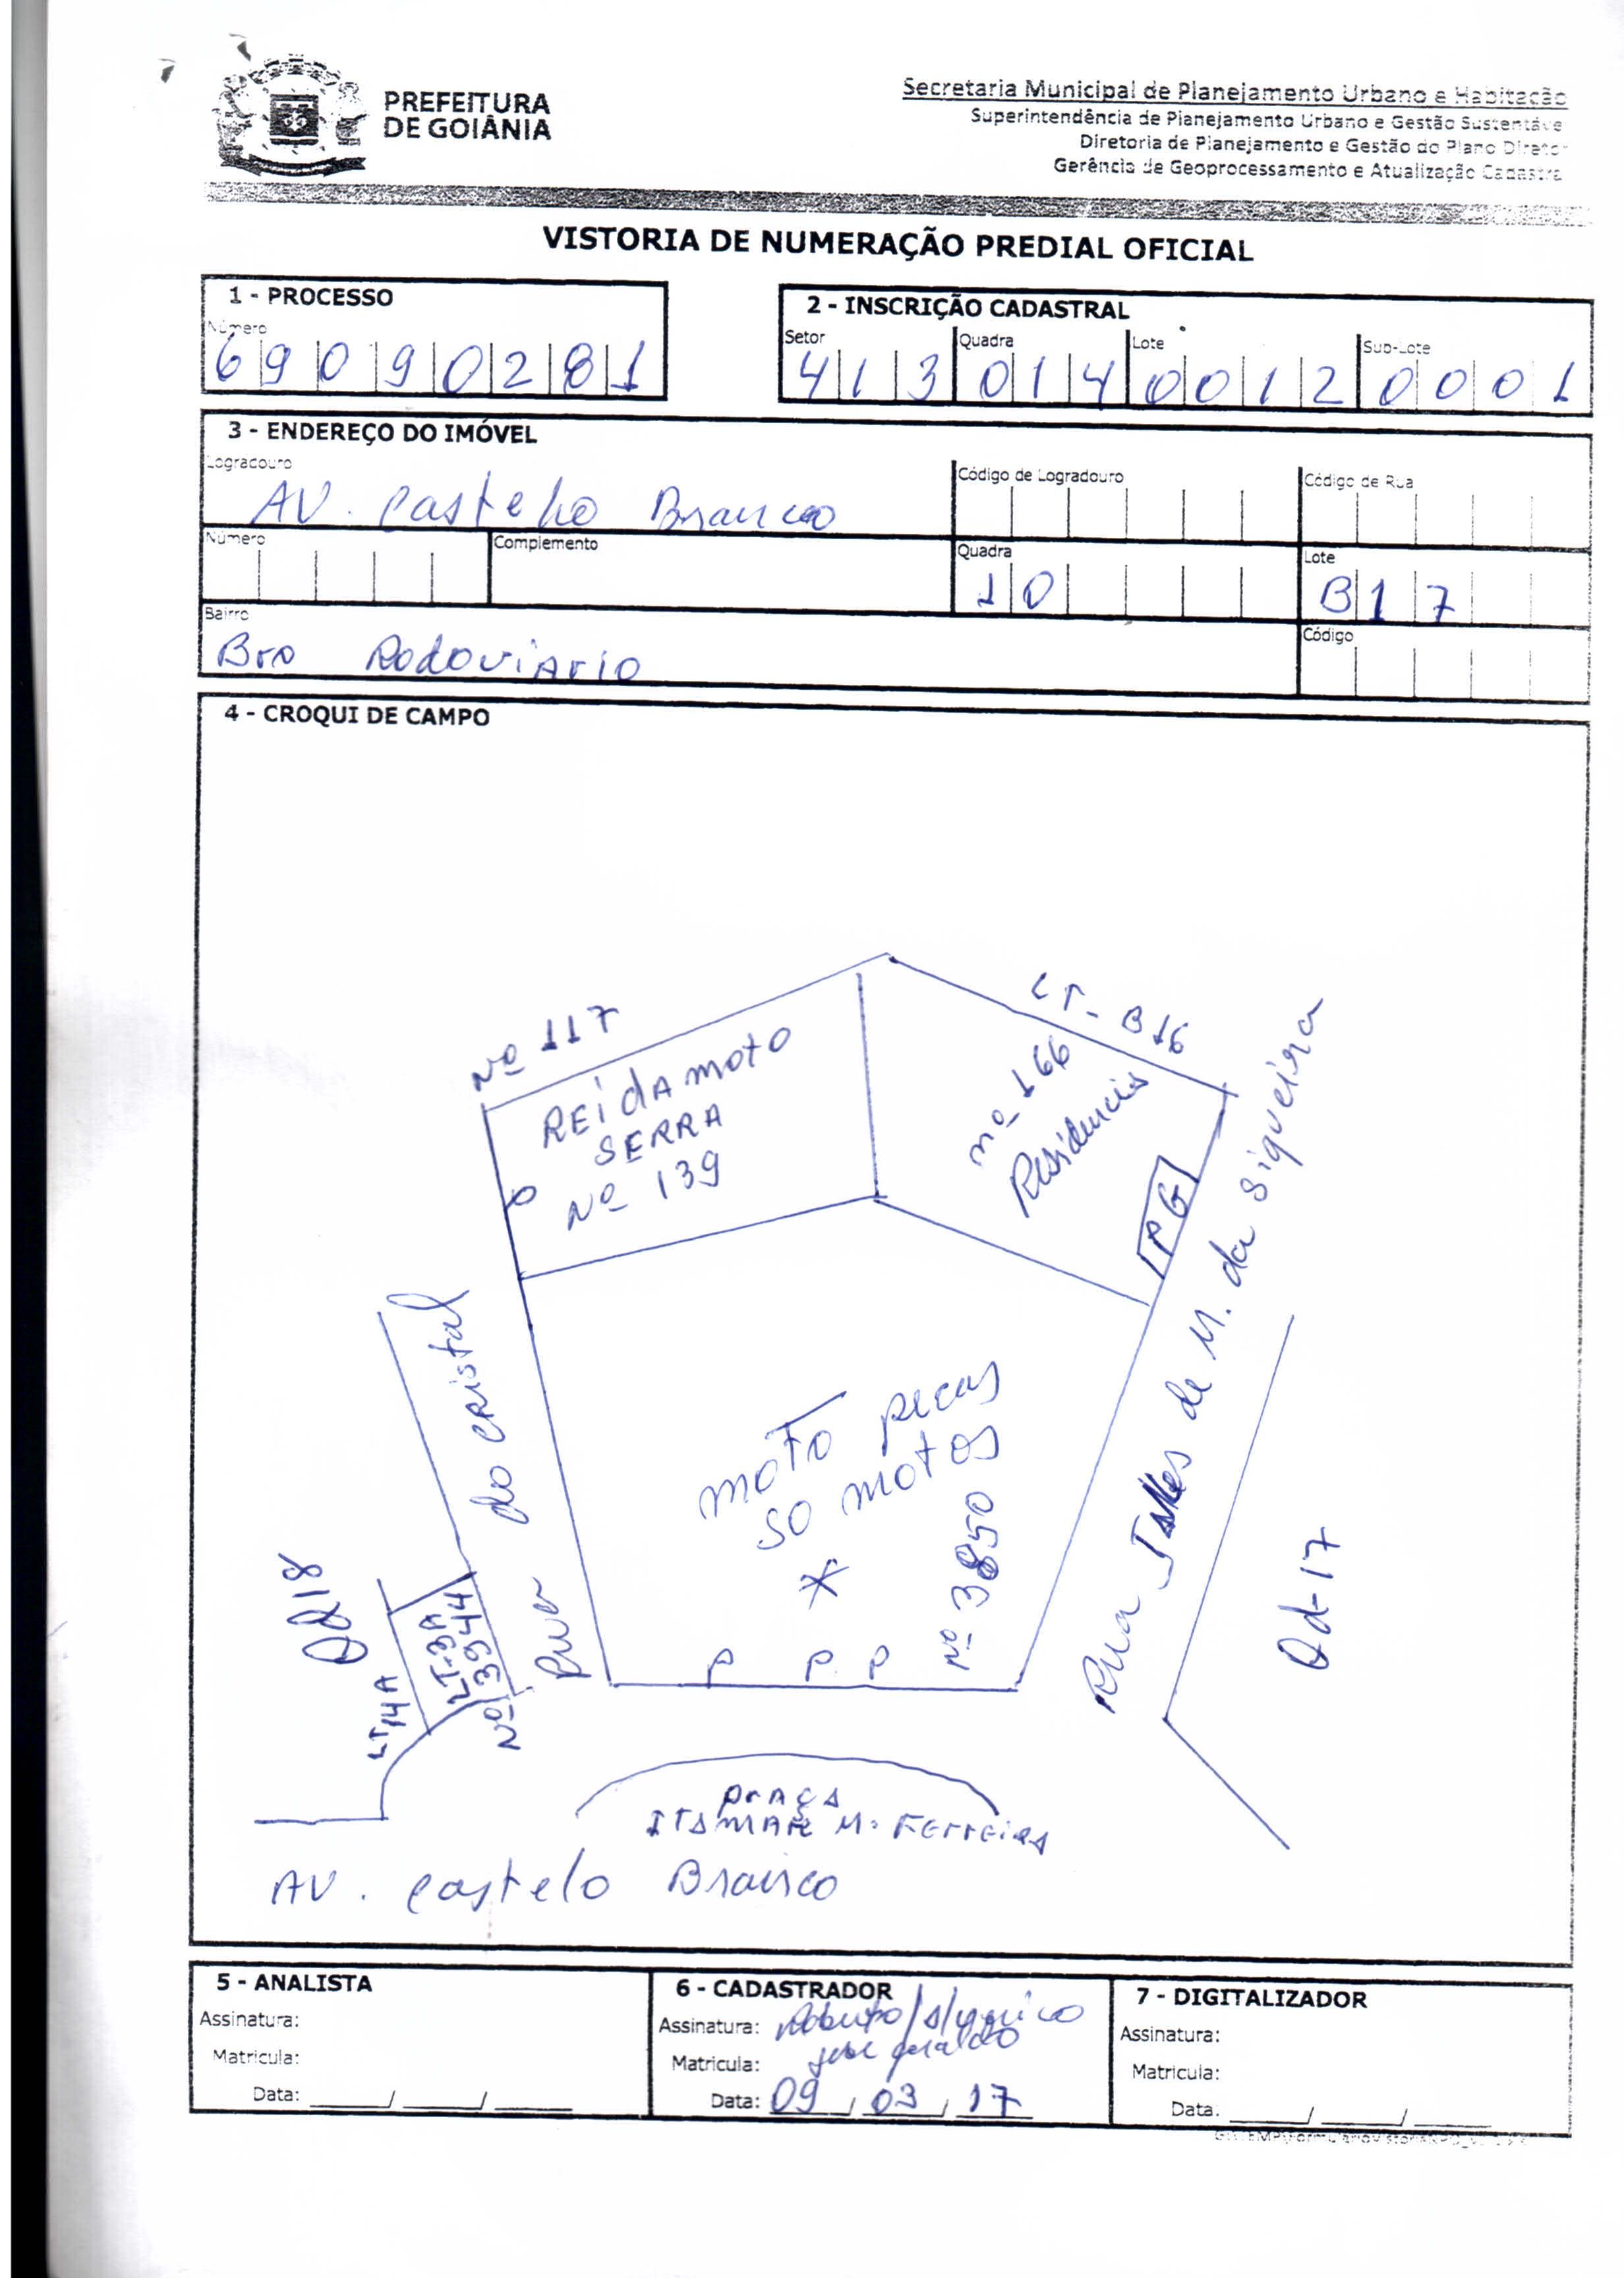 PREFEITURA
DE GOIÂNIA
Secretaria Municipal de Planejamento Urbano e Habitação
Superintendência de Planejamento Urbano e Gestão Sustentáve
Diretoria de Planejamento e Gestão do Plano Diretor
Gerência de Geoprocessamento e Atualização Cadastra
VISTORIA DE NUMERAÇÃO PREDIAL OFICIAL
1 - PROCESSO
Número
69090281
2 - INSCRIÇÃO CADASTRAL
Setor Quadra Lote Sub-Lote
413 014 0012 0001
3 - ENDEREÇO DO IMÓVEL
Logradouro Código de Logradouro Código de Rua
AV. Castelo Branco
Número Complemento Quadra Lote
10 B17
Bairro Código
Bro Rodoviario
4 - CROQUI DE CAMPO
Nº 117
LT- B16
REi dA moto
SERRA
Nº 139
nº 166
Residencia
PG
Rua do CRistal
moto pecas
so motos
*
Nº 3850
P P P
Rua de M. da Siqueira
Qd-17
Qd 18
LT 14A
LT-3A
Nº 3944
PrAçA
ITAMAR M. FErrEirA
AV. Castelo Branco
5 - ANALISTA
Assinatura:
Matricula:
Data: ____/____/____
6 - CADASTRADOR
Assinatura: Roberto/
jose geraldo
Matricula:
Data: 09/03/17
7 - DIGITALIZADOR
Assinatura:
Matricula:
Data. ____/____/____